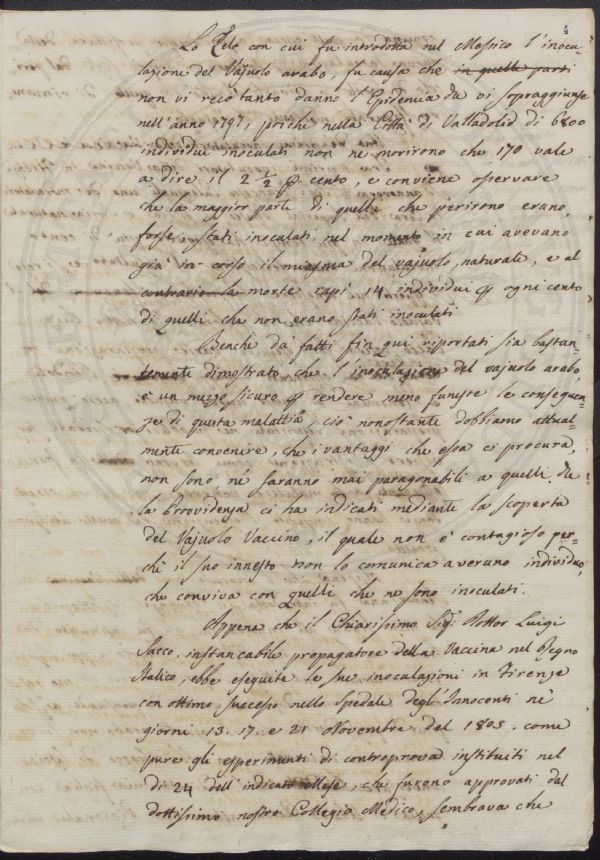 4
Lo Zelo con cui fu introdotta nel Messico l'inocu-
lazione del Vajuolo arabo, fu causa che in quelle parti
non vi recò tanto danno l'Epidemia che vi sopraggiunse
nell'anno 1797, poichè nella Città di Valladolid di 6800
individui inoculati non ne morirono che 170 vale
a dire il 2 1/2 p cento, e conviene osservare
che la maggior parte di quelli che perirono erano,
forse, stati inoculati nel momento in cui avevano
già in corso il miasma del vajuolo naturale, e al
contrario la morte rapì 14 individui p ogni cento
di quelli che non erano stati inoculati
Benche da fatti fin qui riportati sia bastan-
temente dimostrato, che l'inoculazione del vajuolo arabo,
è un mezzo sicuro p rendere meno funeste le conseguen-
ze di questa malattia, ciò nonostante dobbiamo attual-
mente convenire, che i vantaggi che essa ci procura,
non sono, né saranno mai paragonabili a quelli che
la Provvidenza ci ha indicati mediante la scoperta
del Vajuolo Vaccino, il quale non è contagioso per-
chè il suo innesto non lo comunica a veruno individuo,
che conviva con quelli che ne sono inoculati.
Appena che il Chiarissimo Sig: Dottor Luigi
Sacco, instancabile propagatore della Vaccina nel Regno
Italico, ebbe eseguite le sue inoculazioni in Firenze
con ottimo successo nello Spedale degl'Innocenti ne'
giorni 13. 17. e 21 Novembre del 1805. come
pure gli esperimenti di controprova instituiti nel
dì 24 dell'indicato Mese, che furono approvati dal
dottissimo nostro Collegio Medico, sembrava che